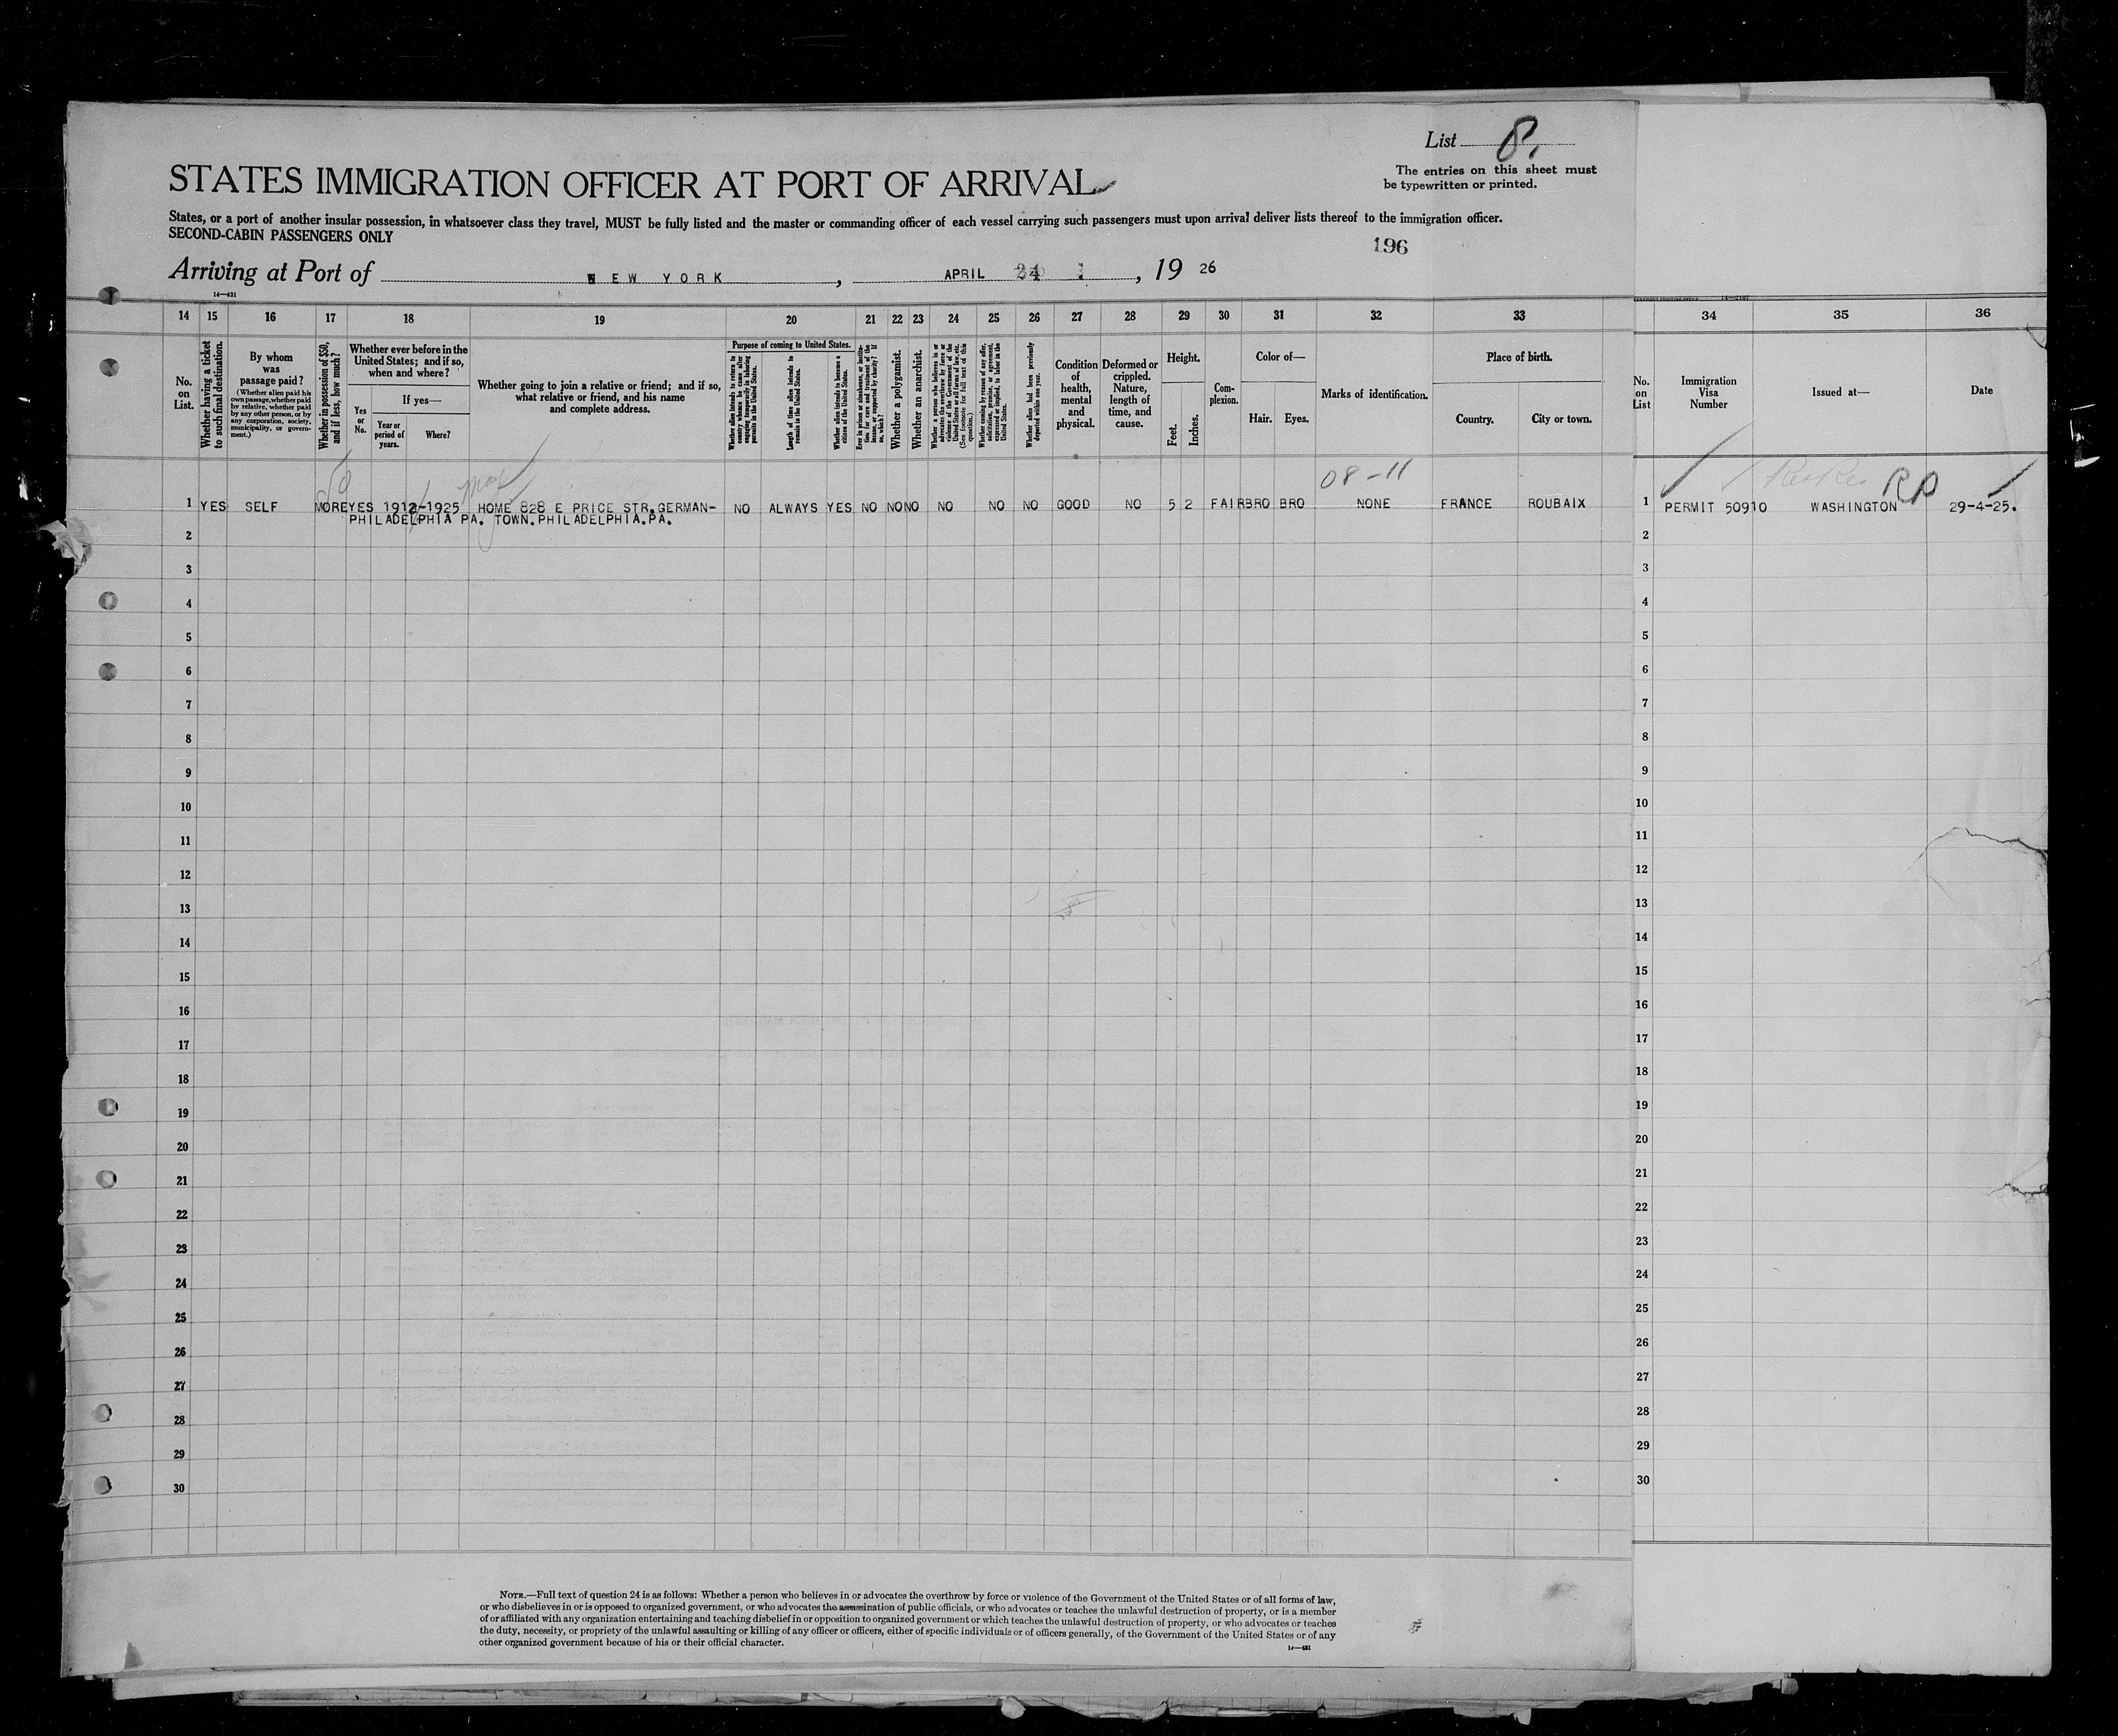 List 8.
The entries on this sheet must
be typewritten or printed.
STATES IMMIGRATION OFFICER AT PORT OF ARRIVAL
States, or a port of another insular possession, in whatsoever class they travel, MUST be fully listed and the master or commanding officer of each vessel carrying such passengers must upon arrival deliver lists thereof to the immigration officer.
SECOND-CABIN PASSENGERS ONLY
196
Arriving at Port of NEW YORK, APRIL 24, 19 26
14—431
14 15 16 17 18 19 20 21 22 23 24 25 26 27 28 29 30 31 32 33 34 35 36
No. on List.
Whether having a ticket to such final destination.
By whom was passage paid?
(Whether alien paid his own passage, whether paid by relative, whether paid by any other person, or by any corporation, society, municipality, or government.)
Whether in possession of $50, and if less, how much?
Whether ever before in the United States; and if so, when and where?
Yes or No.
If yes—
Year or period of years.
Where?
Whether going to join a relative or friend; and if so, what relative or friend, and his name and complete address.
Purpose of coming to United States.
Whether alien intends to return to country whence he came after engaging temporarily in laboring pursuits in the United States.
Length of time alien intends to remain in the United States.
Whether alien intends to become a citizen of the United States.
Ever in prison or almshouse, or institution for care and treatment of the insane, or supported by charity? If so, which?
Whether a polygamist.
Whether an anarchist.
Whether a person who believes in or advocates the overthrow by force or violence of the Government of the United States or all forms of law, etc. (See footnote for full text of this question.)
Whether coming by reason of any offer, solicitation, promise, or agreement, expressed or implied, to labor in the United States.
Whether alien had been previously deported within one year.
Condition of health, mental and physical.
Deformed or crippled. Nature, length of time, and cause.
Height.
Feet.
Inches.
Complexion.
Color of—
Hair.
Eyes.
Marks of identification.
Place of birth.
Country.
City or town.
No. on List
Immigration Visa Number
Issued at—
Date
50
May
08-11
RP
1 YES SELF MORE YES 1912-1925 HOME 828 E PRICE STR.GERMAN- NO ALWAYS YES NO NO NO NO NO NO GOOD NO 5 2 FAIR BRO BRO NONE FRANCE ROUBAIX 1 PERMIT 50910 WASHINGTON 29-4-25.
PHILADELPHIA PA. TOWN.PHILADELPHIA.PA.
2 2
3 3
4 4
5 5
6 6
7 7
8 8
9 9
10 10
11 11
12 12
13 13
14 14
15 15
16 16
17 17
18 18
19 19
20 20
21 21
22 22
23 23
24 24
25 25
26 26
27 27
28 28
29 29
30 30
NOTE.—Full text of question 24 is as follows: Whether a person who believes in or advocates the overthrow by force or violence of the Government of the United States or of all forms of law,
or who disbelieves in or is opposed to organized government, or who advocates the assassination of public officials, or who advocates or teaches the unlawful destruction of property, or is a member
of or affiliated with any organization entertaining and teaching disbelief in or opposition to organized government or which teaches the unlawful destruction of property, or who advocates or teaches
the duty, necessity, or propriety of the unlawful assaulting or killing of any officer or officers, either of specific individuals or of officers generally, of the Government of the United States or of any
other organized government because of his or their official character.
14—431